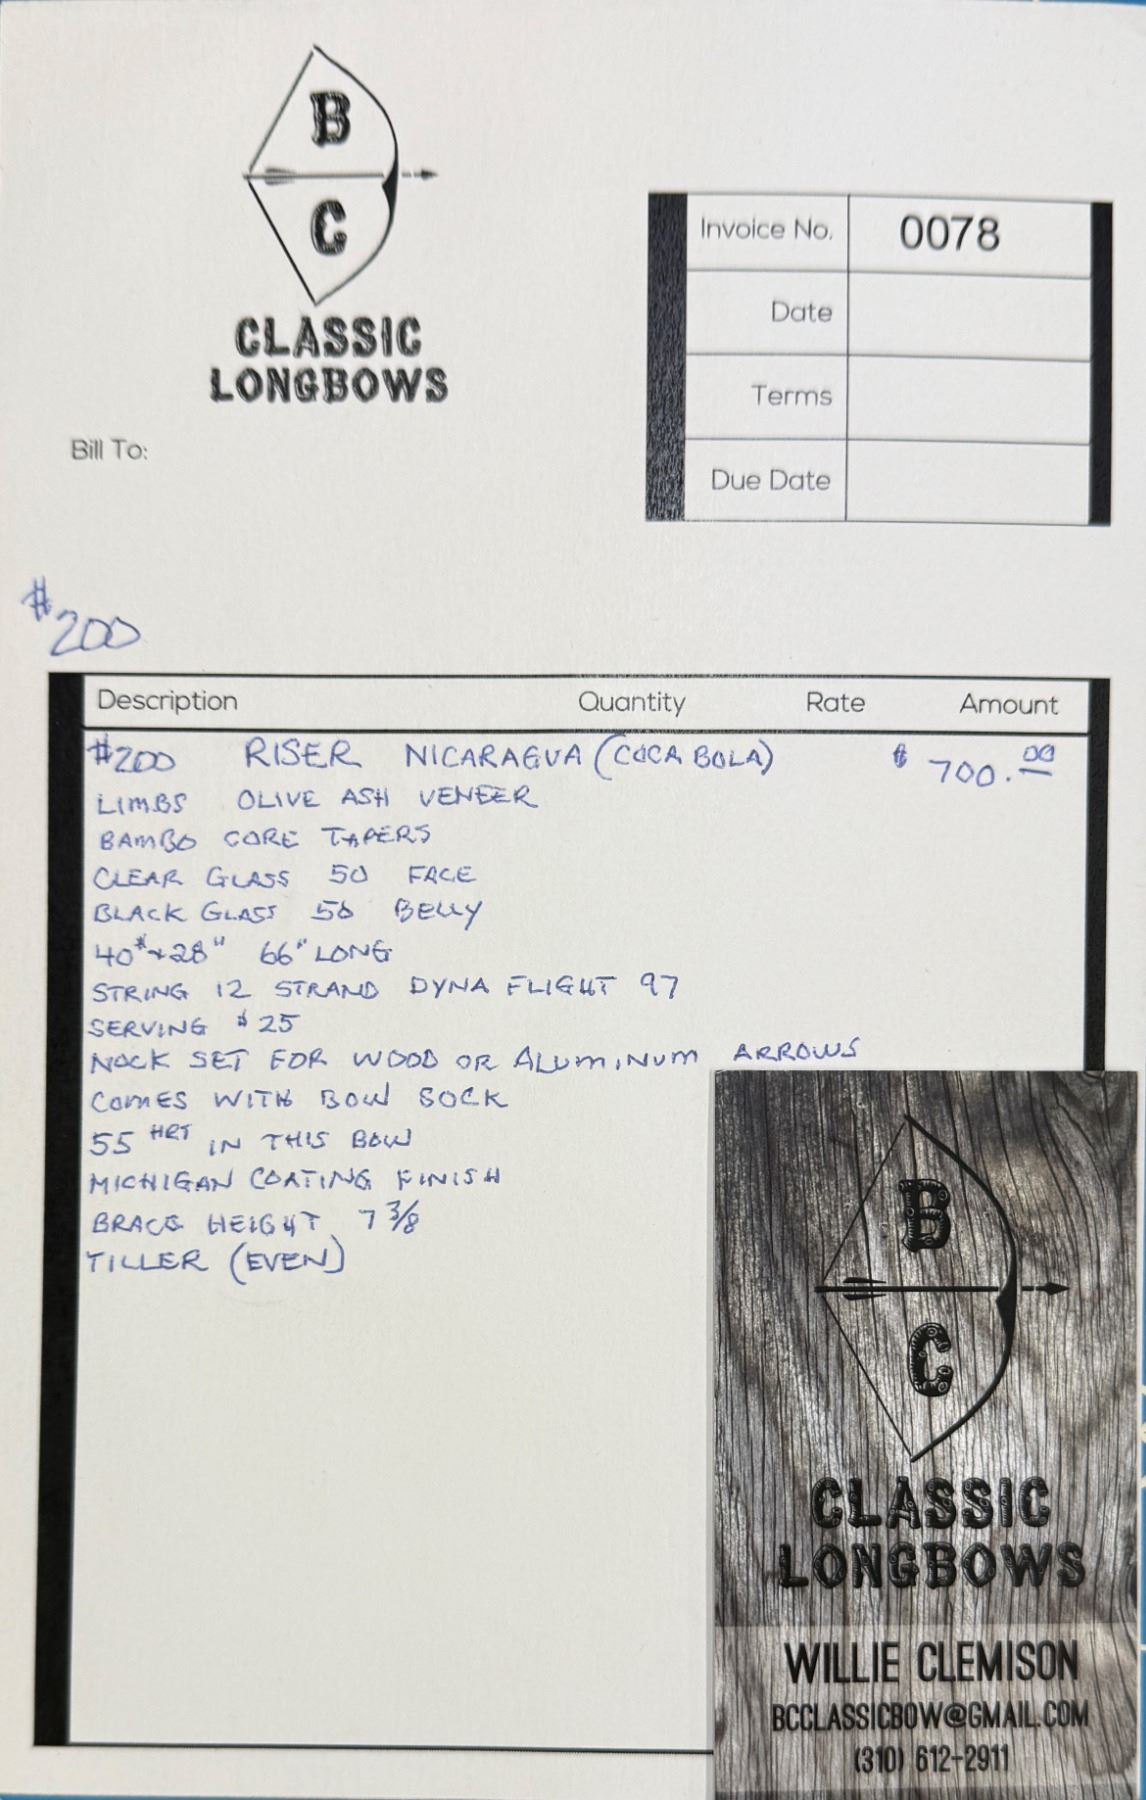 B
C
CLASSIC
LONGBOWS
Invoice No. 0078
Date
Terms
Due Date
Bill To:
#200
Description Quantity Rate Amount
#200 RISER NICARAGUA (COCA BOLA) $ 700.00
LIMBS OLIVE ASH VENEER
BAMBO CORE TAPERS
CLEAR GLASS 50 FACE
BLACK GLASS 50 BELLY
40# 28" 66" LONG
STRING 12 STRAND DYNA FLIGHT 97
SERVING #25
NOCK SET FOR WOOD OR ALUMINUM ARROWS
COMES WITH BOW SOCK
55 HRS IN THIS BOW
MICHIGAN COATING FINISH
BRACE HEIGHT 7 3/8
TILLER (EVEN)
B
C
CLASSIC
LONGBOWS
WILLIE CLEMISON
BCCLASSICBOW@GMAIL.COM
(310) 612-2911